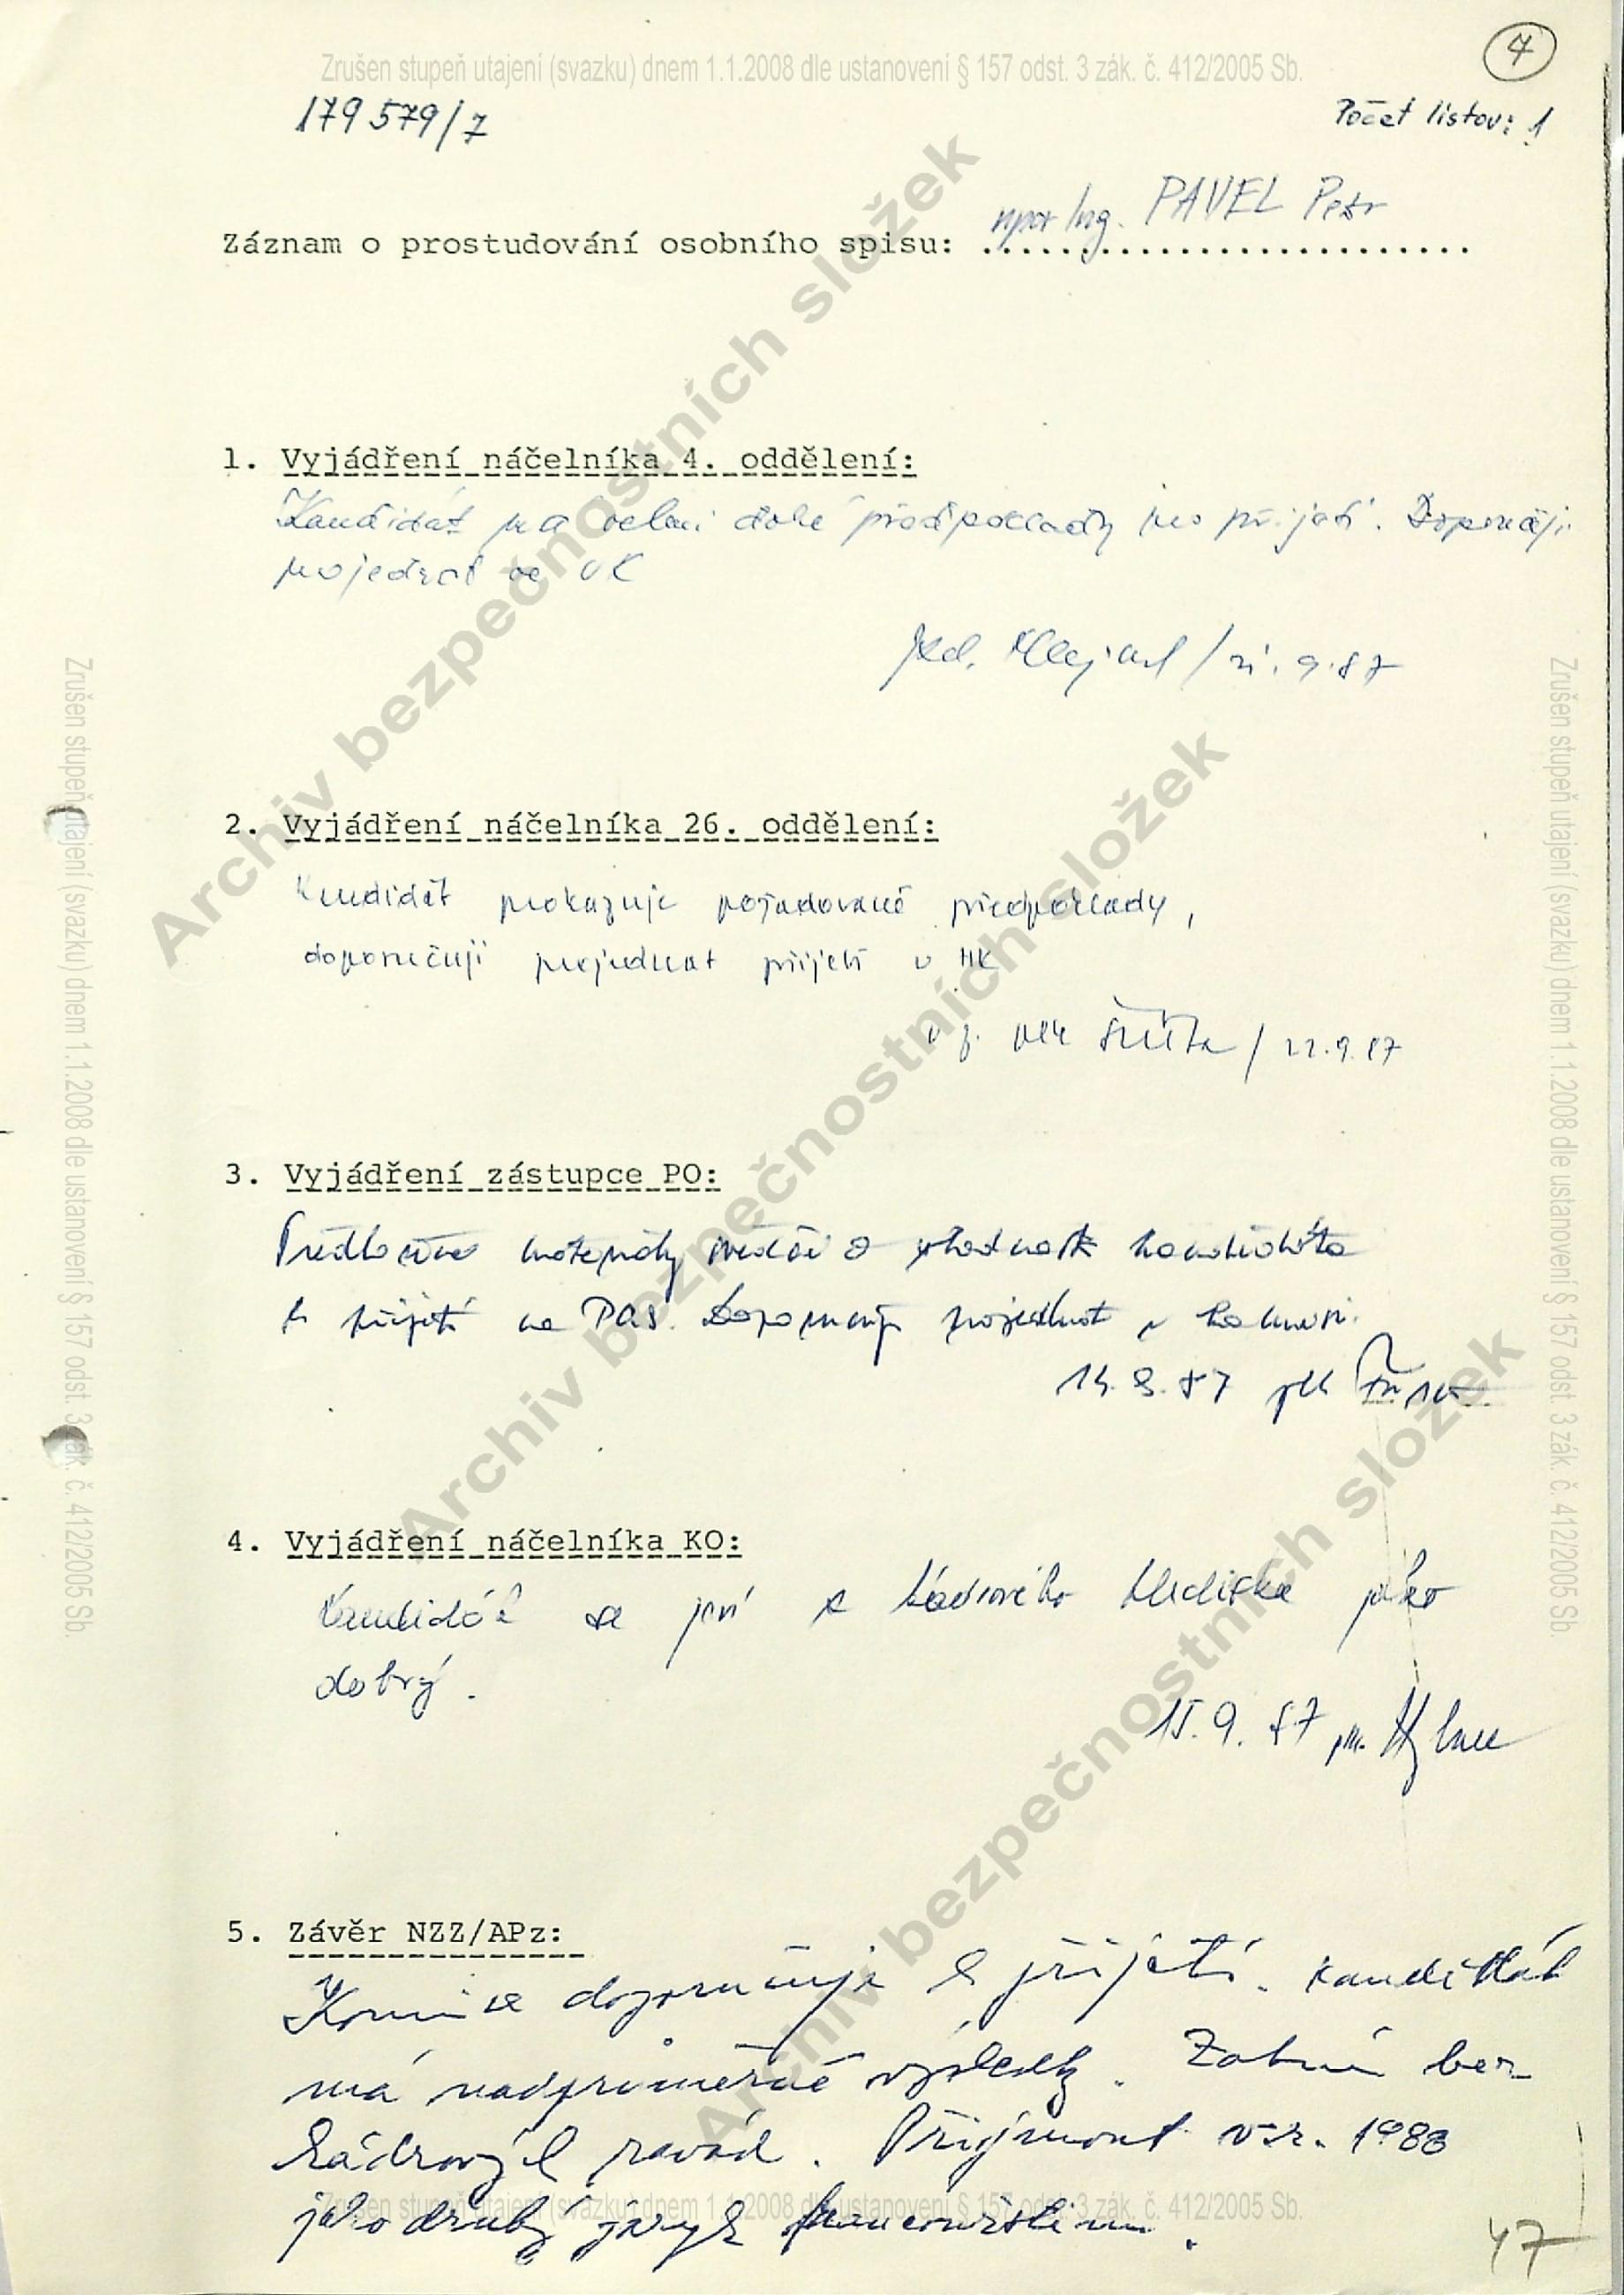 7
Zrušen stupeň utajení (svazku) dnem 1.1.2008 dle ustanovení § 157 odst. 3 zák. č. 412/2005 Sb.
179 579/7
Počet listov: 1
Záznam o prostudování osobního spisu: npor Ing. PAVEL Petr
1. Vyjádření náčelníka 4. oddělení:
Kandidát má velmi dobré předpoklady pro přijetí. Doporučuji
projednat ve VK
/ 21.9.87
2. Vyjádření náčelníka 26. oddělení:
Kandidát prokazuje požadované předpoklady,
doporučuji projednat přijetí v
/ 22.9.87
3. Vyjádření zástupce PO:
Předložené materiály svědčí o vhodnosti kandidáta
k přijetí na Doporučuji projednat v komisi.
87
4. Vyjádření náčelníka KO:
Kandidát se jeví z kádrového hlediska jako
dobrý.
15.9.87
5. Závěr NZZ/APz:
Komise doporučuje k přijetí. Kandidát
má nadprůměrné výsledky. Zatím bez
kádrových závad. Přijmout v r. 1988
jako druhý jazyk francouzštinu.
Zrušen stupeň utajení (svazku) dnem 1.1.2008 dle ustanovení § 157 odst. 3 zák. č. 412/2005 Sb.
47
Zrušen stupeň utajení (svazku) dnem 1.1.2008 dle ustanovení § 157 odst. 3 zák. č. 412/2005 Sb.
Zrušen stupeň utajení (svazku) dnem 1.1.2008 dle ustanovení § 157 odst. 3 zák. č. 412/2005 Sb.
Archiv bezpečnostních složek
Archiv bezpečnostních složek
Archiv bezpečnostních složek